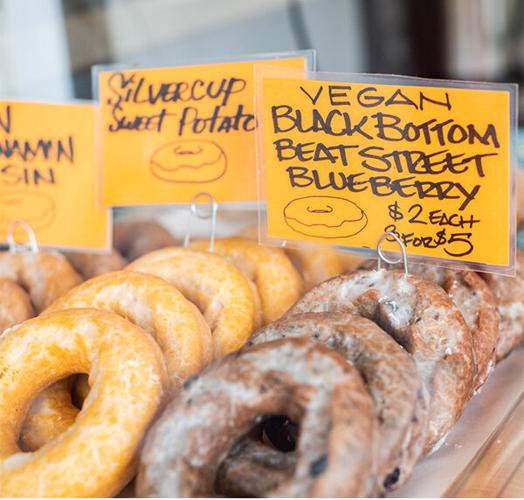 N
SIN
SILVERCUP
SWEET POTATO
VEGAN
BLACK BOTTOM
BEAT STREET
BLUEBERRY
$2 EACH
FOR $5